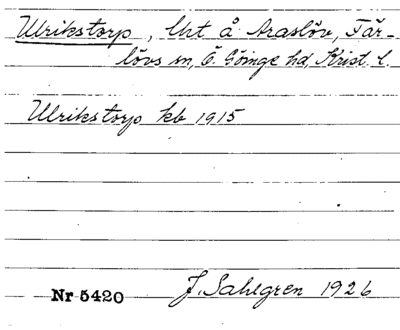 Ulrikstorp, lht å Araslöv, Fär-
lövs sn, Ö. Göinge hd, Krist. l.
Ulrikstorp kb 1915
Nr 5420 J. Sahlgren 1926